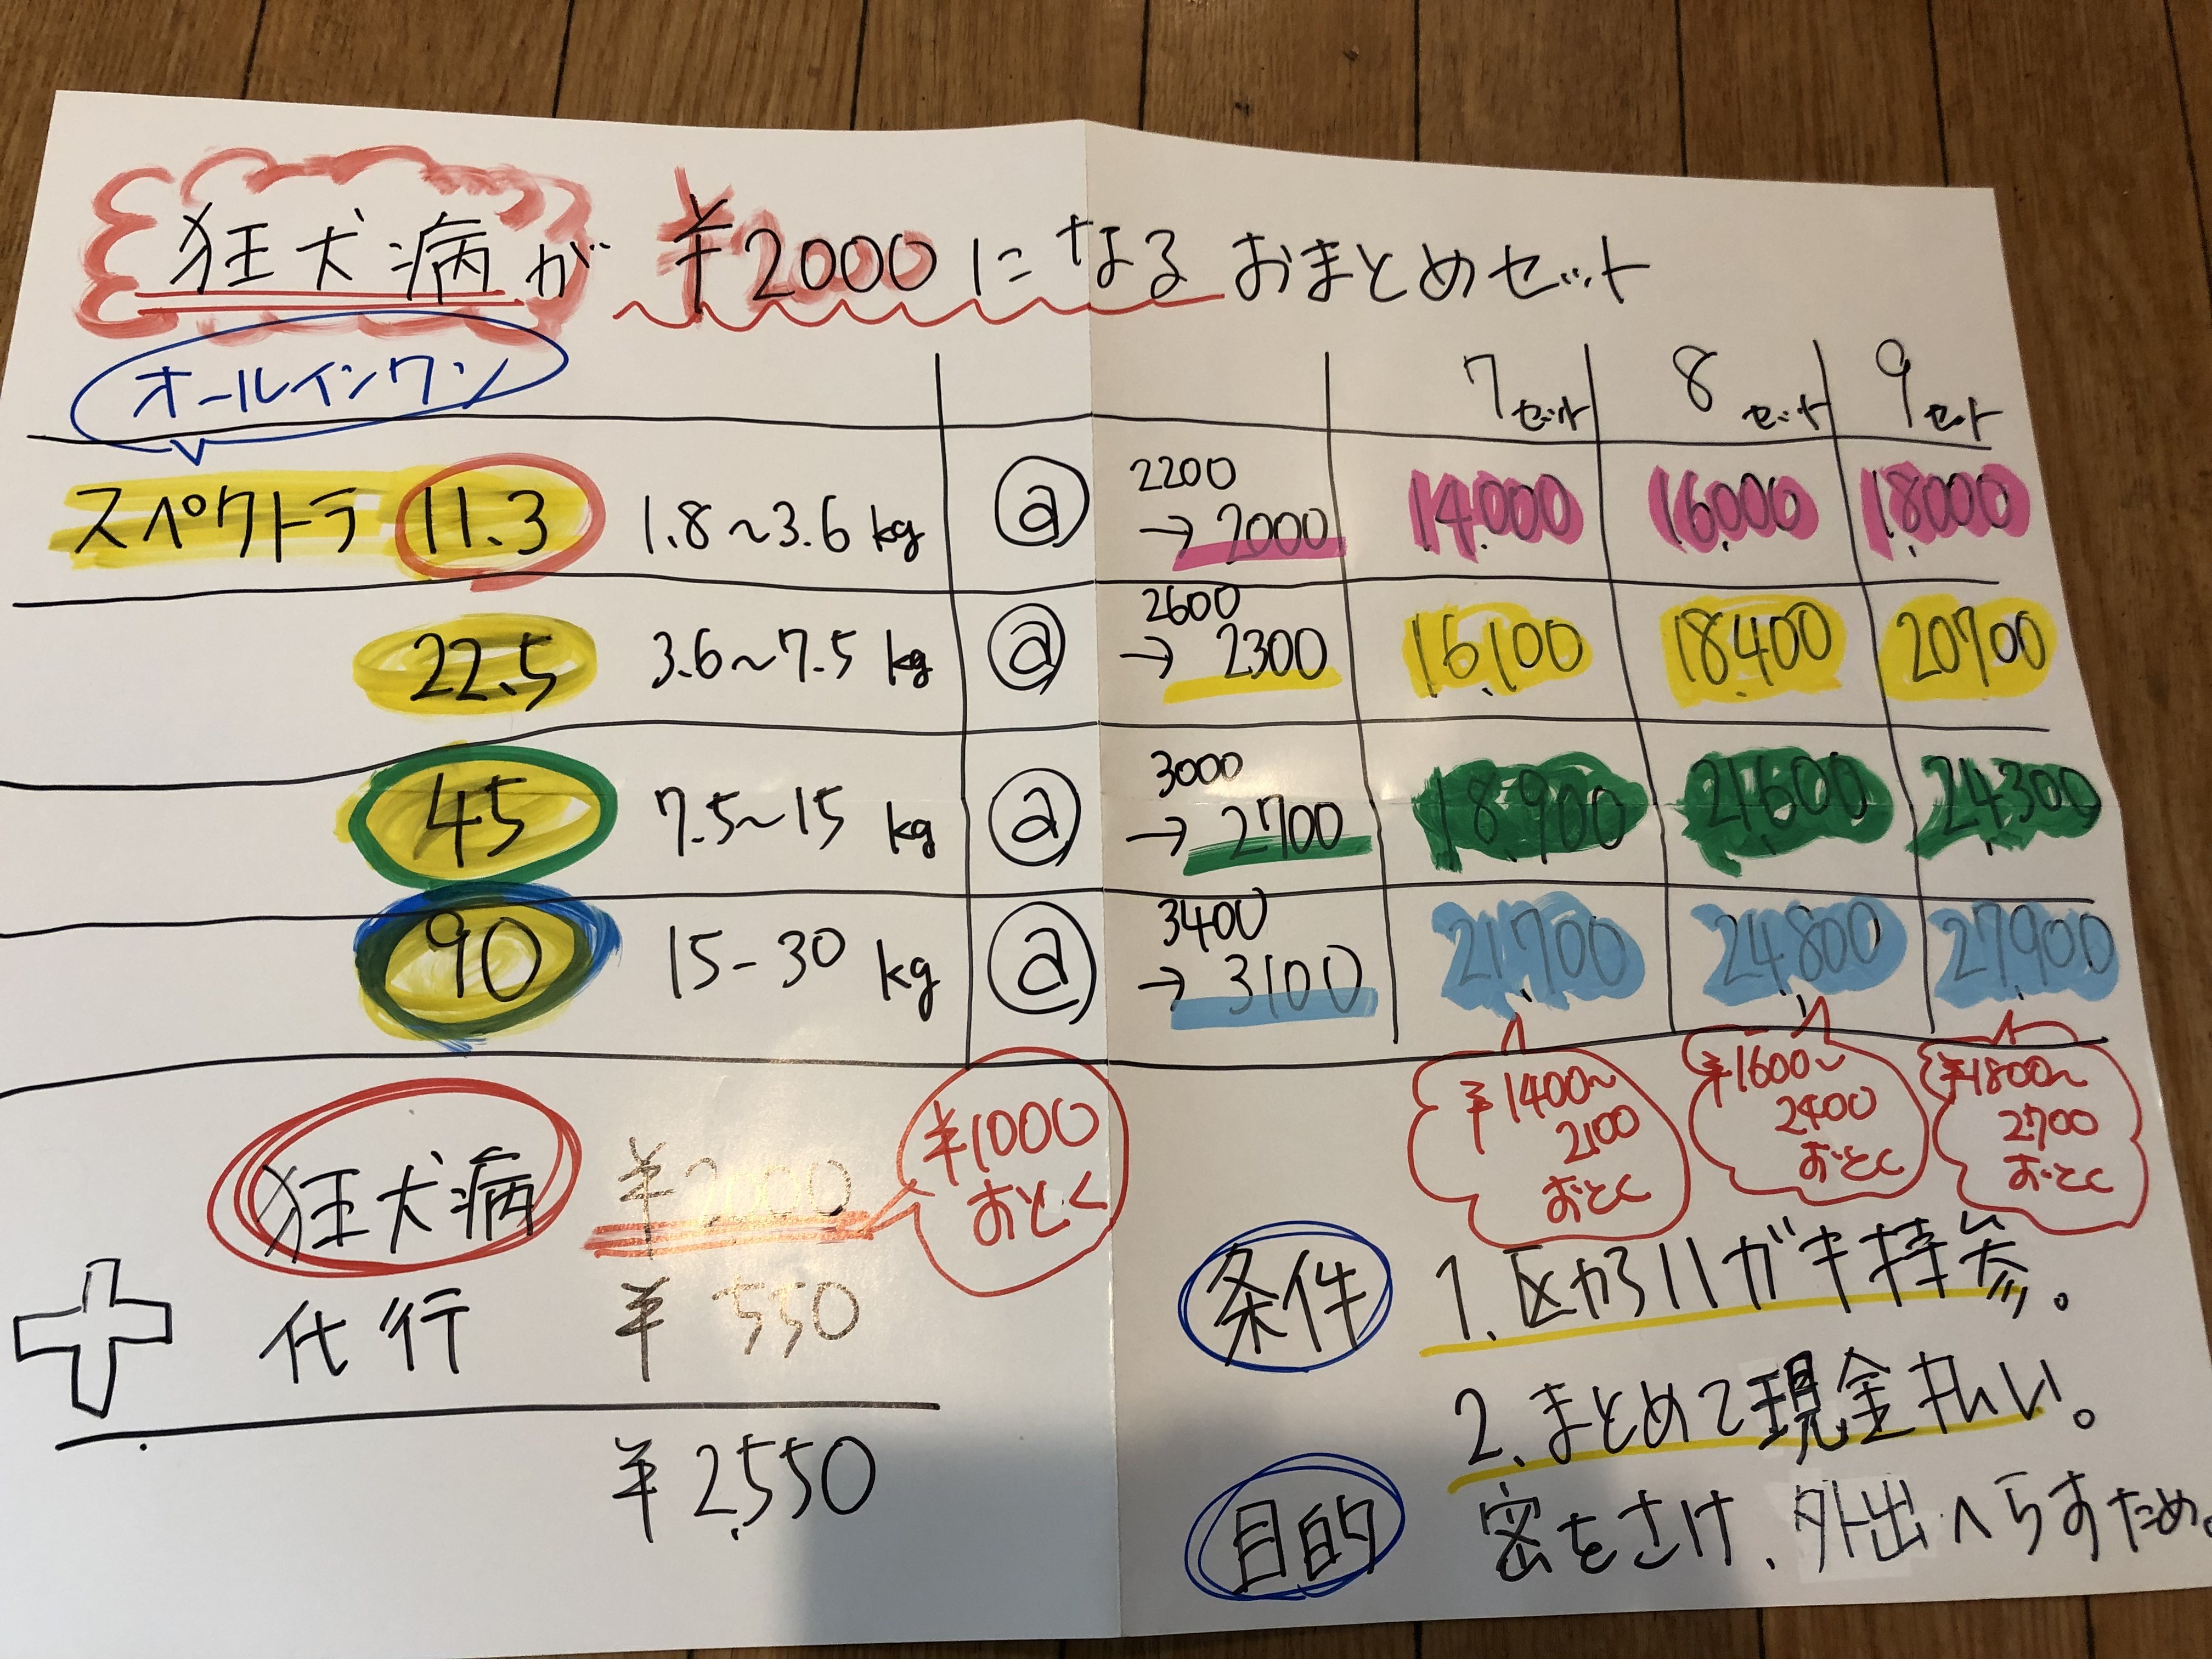 狂犬病が ¥2000になるおまとめセット
オールインワン
7セット 8セット 9セット
スペクトラ 11.3 1.8~3.6kg ⓐ 2200→2000 14.000 16.000 18.000
22.5 3.6~7.5kg ⓐ 2600→2300 16,100 18.400 20700
45 7.5~15kg ⓐ 3000→2700 18.900 21.600 24.300
90 15-30kg ⓐ 3400→3100 21,700 24,800 27,900
¥1400~2100おとく
¥1600~2400おとく
¥1800~2700おとく
狂犬病 ¥2000
¥1000おとく
+ 代行 ¥550
¥2,550
条件 1.区からハガキ持参。
2.まとめて現金払い。
目的 密をさけ、外出へらすため。